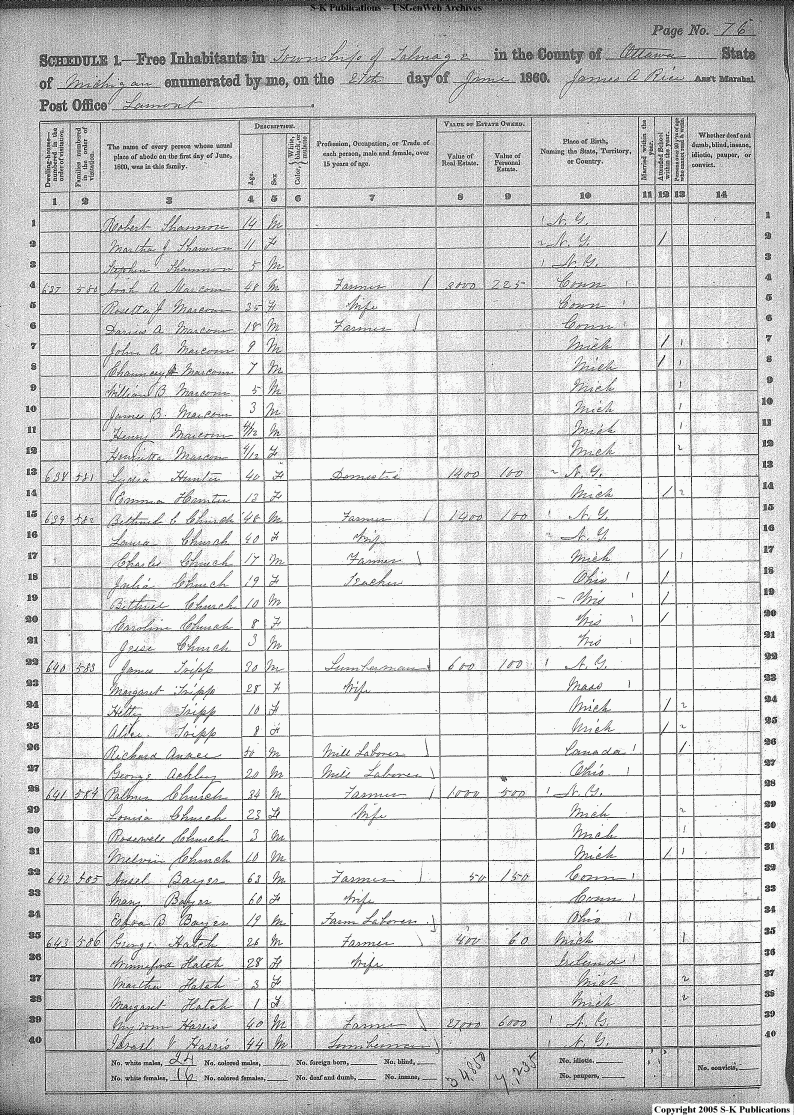 S-K Publications – USGenWeb Archives
Page No. 76
SCHEDULE 1.—Free Inhabitants in Township of Talmage in the County of Ottawa State
of Michigan enumerated by me, on the 27th day of June 1860. James A Rice Ass't Marshal
Post Office Lamont.
Dwelling-houses numbered in the order of visitation.
Families numbered in the order of visitation.
The name of every person whose usual place of abode on the first day of June, 1860, was in this family.
DESCRIPTION.
Age.
Sex
Color, White, black, or mulatto
Profession, Occupation, or Trade of each person, male and female, over 15 years of age.
VALUE OF ESTATE OWNED.
Value of Real Estate.
Value of Personal Estate.
Place of Birth, Naming the State, Territory, or Country.
Married within the year.
Attended School within the year.
Whether deaf and dumb, blind, insane, idiotic, pauper, or convict.
1 2 3 4 5 6 7 8 9 10 11 12 13 14
1 Robert Shannon 14 M N.Y. 1
2 Martha J Shannon 11 F N.Y. / 2
3 Shannon 5 M N.Y. 3
4 637 580 A Marcom 48 M Farmer 2000 225 Conn 4
5 Rosetta J Marcom 35 F Wife Conn 5
6 Darius A Marcom 18 M Farmer Conn 6
7 John A Marcom 9 M Mich / 1 7
8 Chauncey Marcom 7 M Mich / 1 8
9 William B Marcom 5 M Mich 1 9
10 James B. Marcom 3 M Mich 1 10
11 Henry Marcom 4/12 M Mich 1 11
12 Henrietta Marcom 4/12 F Mich 2 12
13 638 581 Lydia Hunter 40 F Domestic 1400 100 N.Y. 13
14 Emma Hunter 13 F Mich / 2 14
15 639 582 C Church 48 M Farmer 1400 100 N.Y 15
16 Laura Church 40 F Wife N.Y 16
17 Charles Church 17 M Farmer Mich / 1 17
18 Julia Church 19 F Teacher Ohio / 18
19 Church 10 M Wis / 19
20 Caroline Church 8 F Wis / 20
21 Jesse Church 3 M Wis 21
22 640 583 James Tripp 30 M Lumberman 600 100 N.Y. 22
23 Margaret Tripp 28 F Wife Mass 23
24 Hetty Tripp 10 F Mich / 2 24
25 Alice Tripp 8 F Mich / 2 25
26 Richard 50 M Mill Laborer Canada 1 26
27 George Ashley 20 M Mill Laborer Ohio 27
28 641 584 Palmer Church 34 M Farmer 1000 500 N.Y. 28
29 Louisa Church 23 F Wife Mich 2 29
30 Rosewell Church 3 M Mich 1 30
31 Melvin Church 10 M Mich / 1 31
32 642 585 Ansel Bayer 63 M Farmer 50 150 Conn 32
33 Mary Bayer 60 F Wife Conn 33
34 B Bayer 19 M Farm Laborer Ohio 34
35 643 586 George Hatch 26 M Farmer 400 60 Mich 1 35
36 Winneford Hatch 28 F Wife Ireland 36
37 Martha Hatch 3 F Mich 2 37
38 Margaret Hatch 1 F Mich 2 38
39 Myrom Harris 40 M Farmer 27000 6000 N.Y. 39
40 V Harris 44 M Lumberman N.Y. 40
No. white males, 24 No. colored males, No. foreign born, No. blind, 34,850 7,235 No. idiotic. No. convicts,
No. white females, 16 No. colored females, No. deaf and dumb, No. insane, No. paupers,
Copyright 2005 S-K Publications